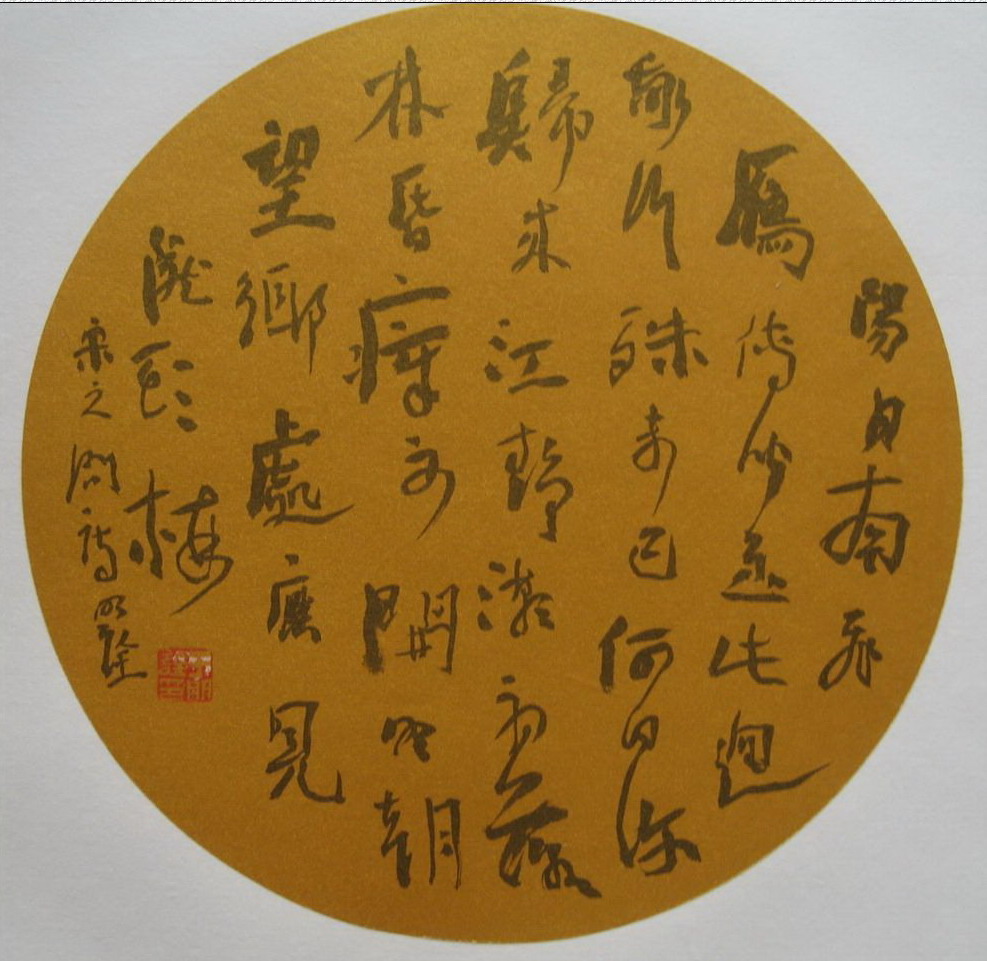 陽月南飛
鴈傳聞至此迴
我行殊未已何日復
歸來江靜潮初落
林昏瘴不開明朝
望鄉處應見
隴頭梅
宋之問詩明